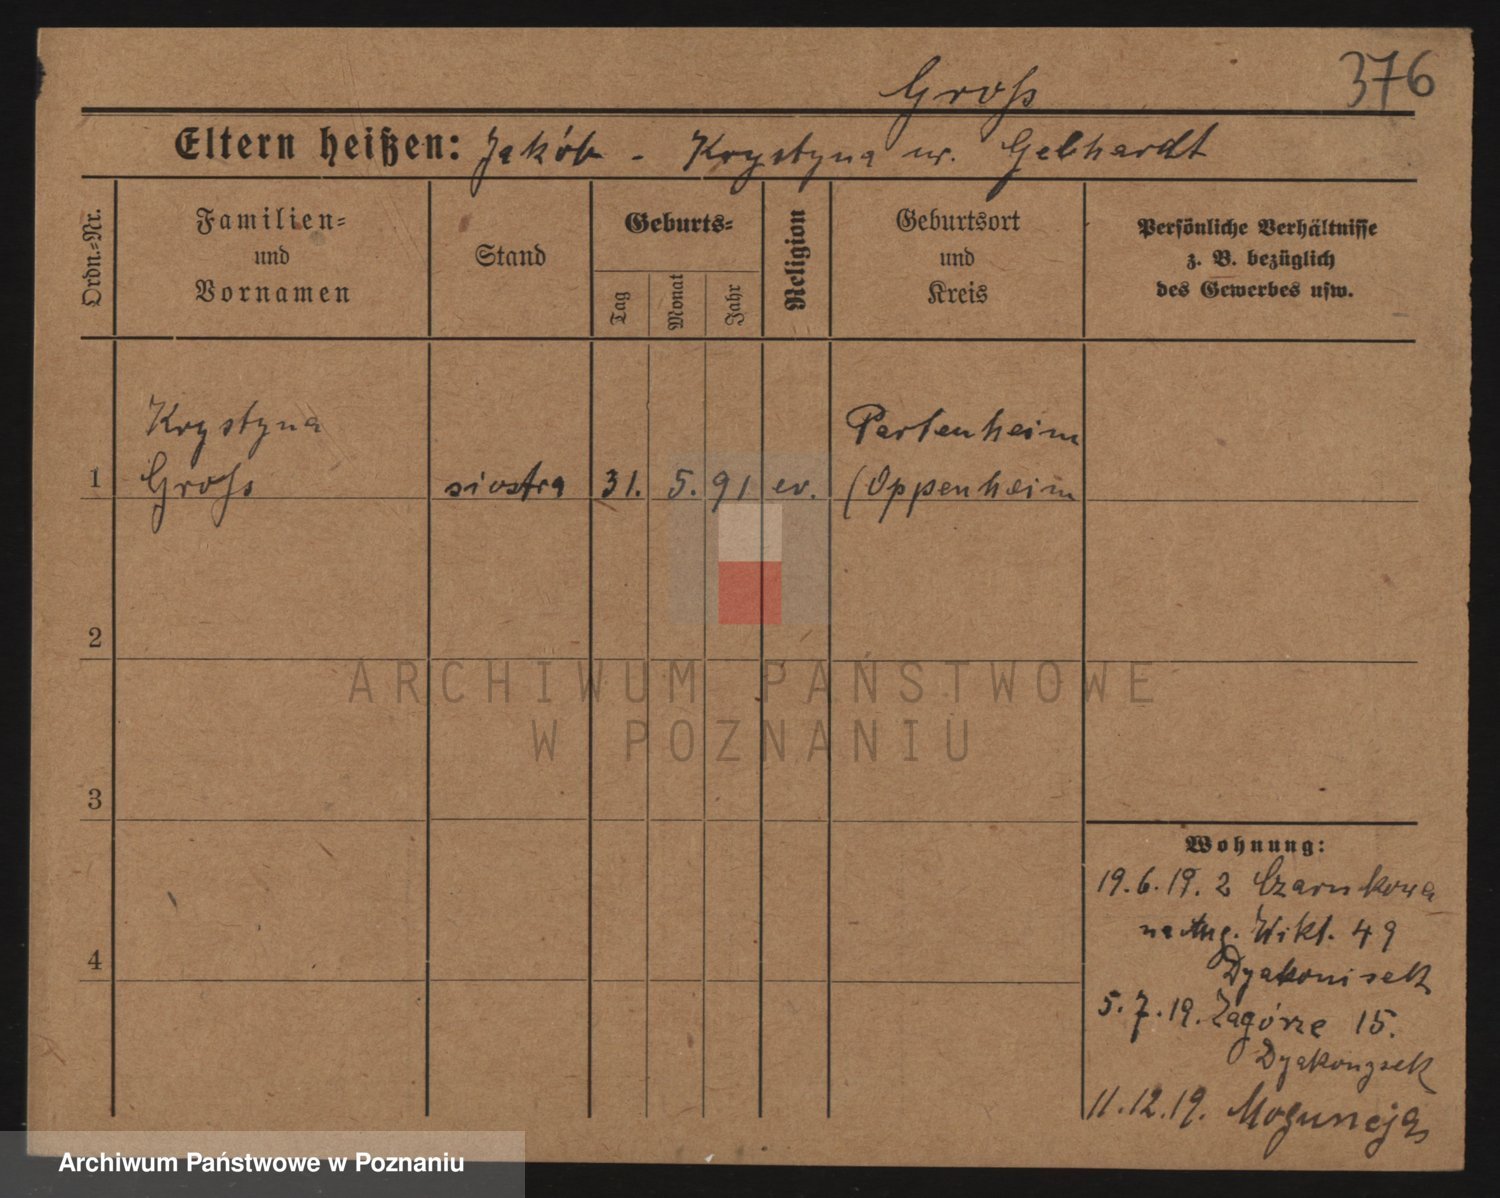 376
Groß
Eltern heißen: Jakób - Krystyna ur. Gebhardt
Ordn.-Nr.
Familien- und Vornamen
Stand
Geburts-
Tag
Monat
Jahr
Religion
Geburtsort und Kreis
Persönliche Verhältnisse
z. B. bezüglich
des Gewerbes usw.
Krystyna
Partenheim
1 Groß siostra 31. 5. 91 ev. (Oppenheim
2
3
4
Wohnung:
19.6.19. z Czarnkowa
na Aug. Wikt. 49
Dyakonisek
5.7.19. Zagórze 15.
Dyakonysek
11.12.19. Moguncja
ARCHIWUM PAŃSTWOWE
W POZNANIU
Archiwum Państwowe w Poznaniu